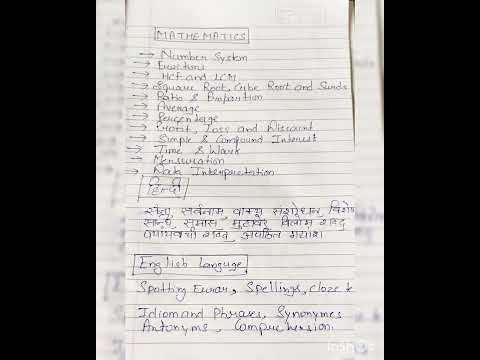 MATHEMATICS
→ Number System
→ Fractions
→ Hcf and LCM
→ Square Root, Cube Root and Surds
→ Ratio & Proportion
→ Average
→ Percentage
→ Profit, Loss and Discount
→ Simple & Compound Interest
→ Time & Work
→ Mensuration
→ Data Interpretation
हिन्दी
संज्ञा, सर्वनाम, वाक्य संशोधन, विशे
समास, मुहावरे, विलोम शब्द
शब्द, अपठित गद्यांश
English Language
Spotting Error, Spellings, Cloze t
Idiom and Phrases, Synonymes
Antonyms, Comprehension.